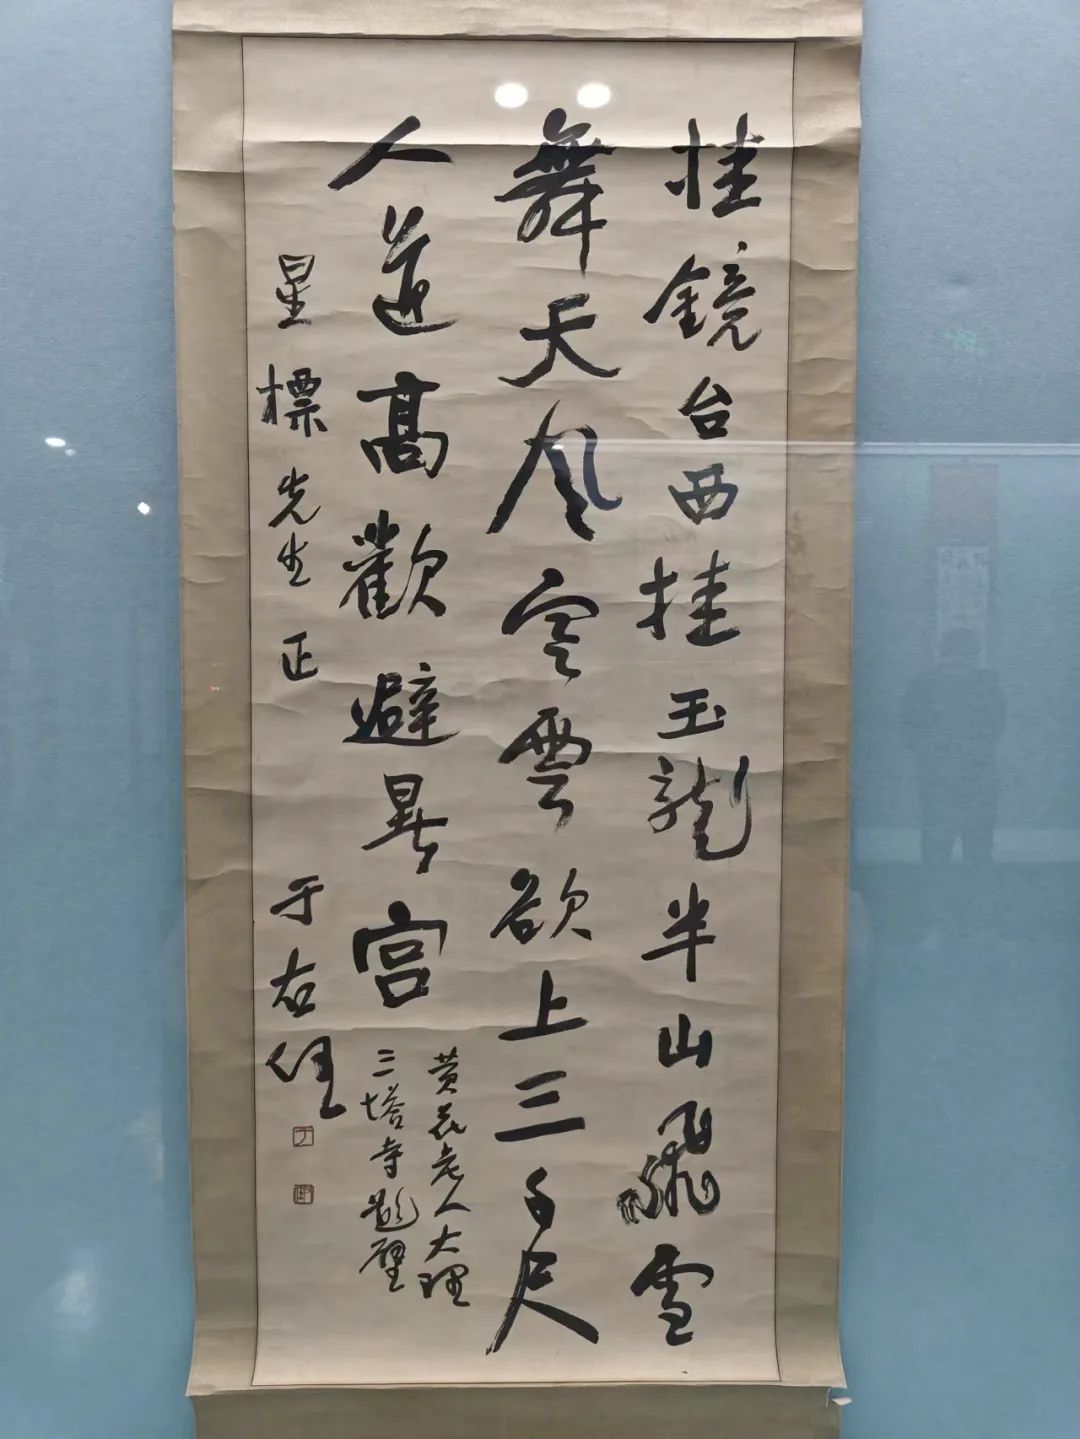 挂鏡台西挂玉龍半山飛雪
舞天風寒雲欲上三千尺
人道高歡避暑宮
黄花老人大理
三塔寺題壁
星標先生正
于右任